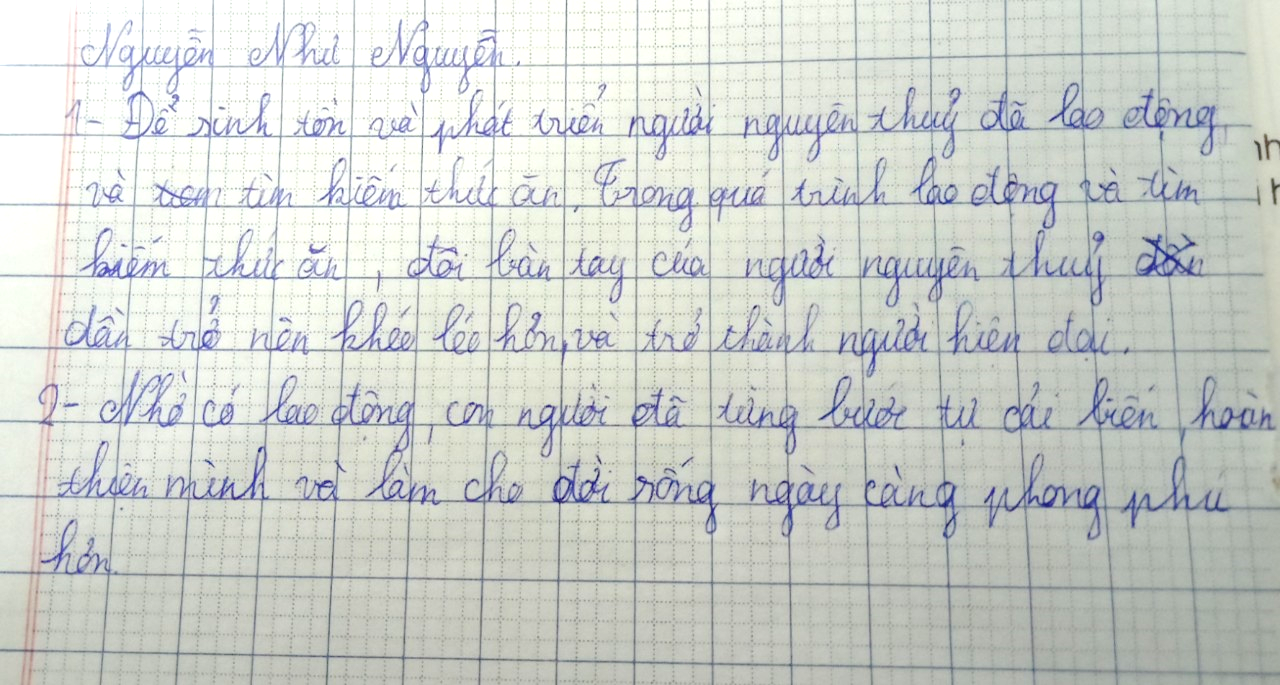 Nguyễn Như Nguyễn.
1- Để sinh tồn và phát triển người nguyên thuỷ đã lao động
và tìm kiếm thức ăn. Trong quá trình lao động và tìm
kiếm thức ăn, đôi bàn tay của người nguyên thuỷ
dần trở nên khéo léo hơn, và trở thành người hiện đại.
2- Nhờ có lao động, con người đã từng bước tự cải biến, hoàn
thiện mình và làm cho đời sống ngày càng phong phú
hơn.